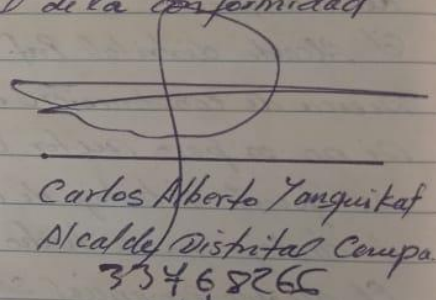 de la conformidad
Carlos Alberto Yanquikat
Alcalde Distrital Cenepa
33768266